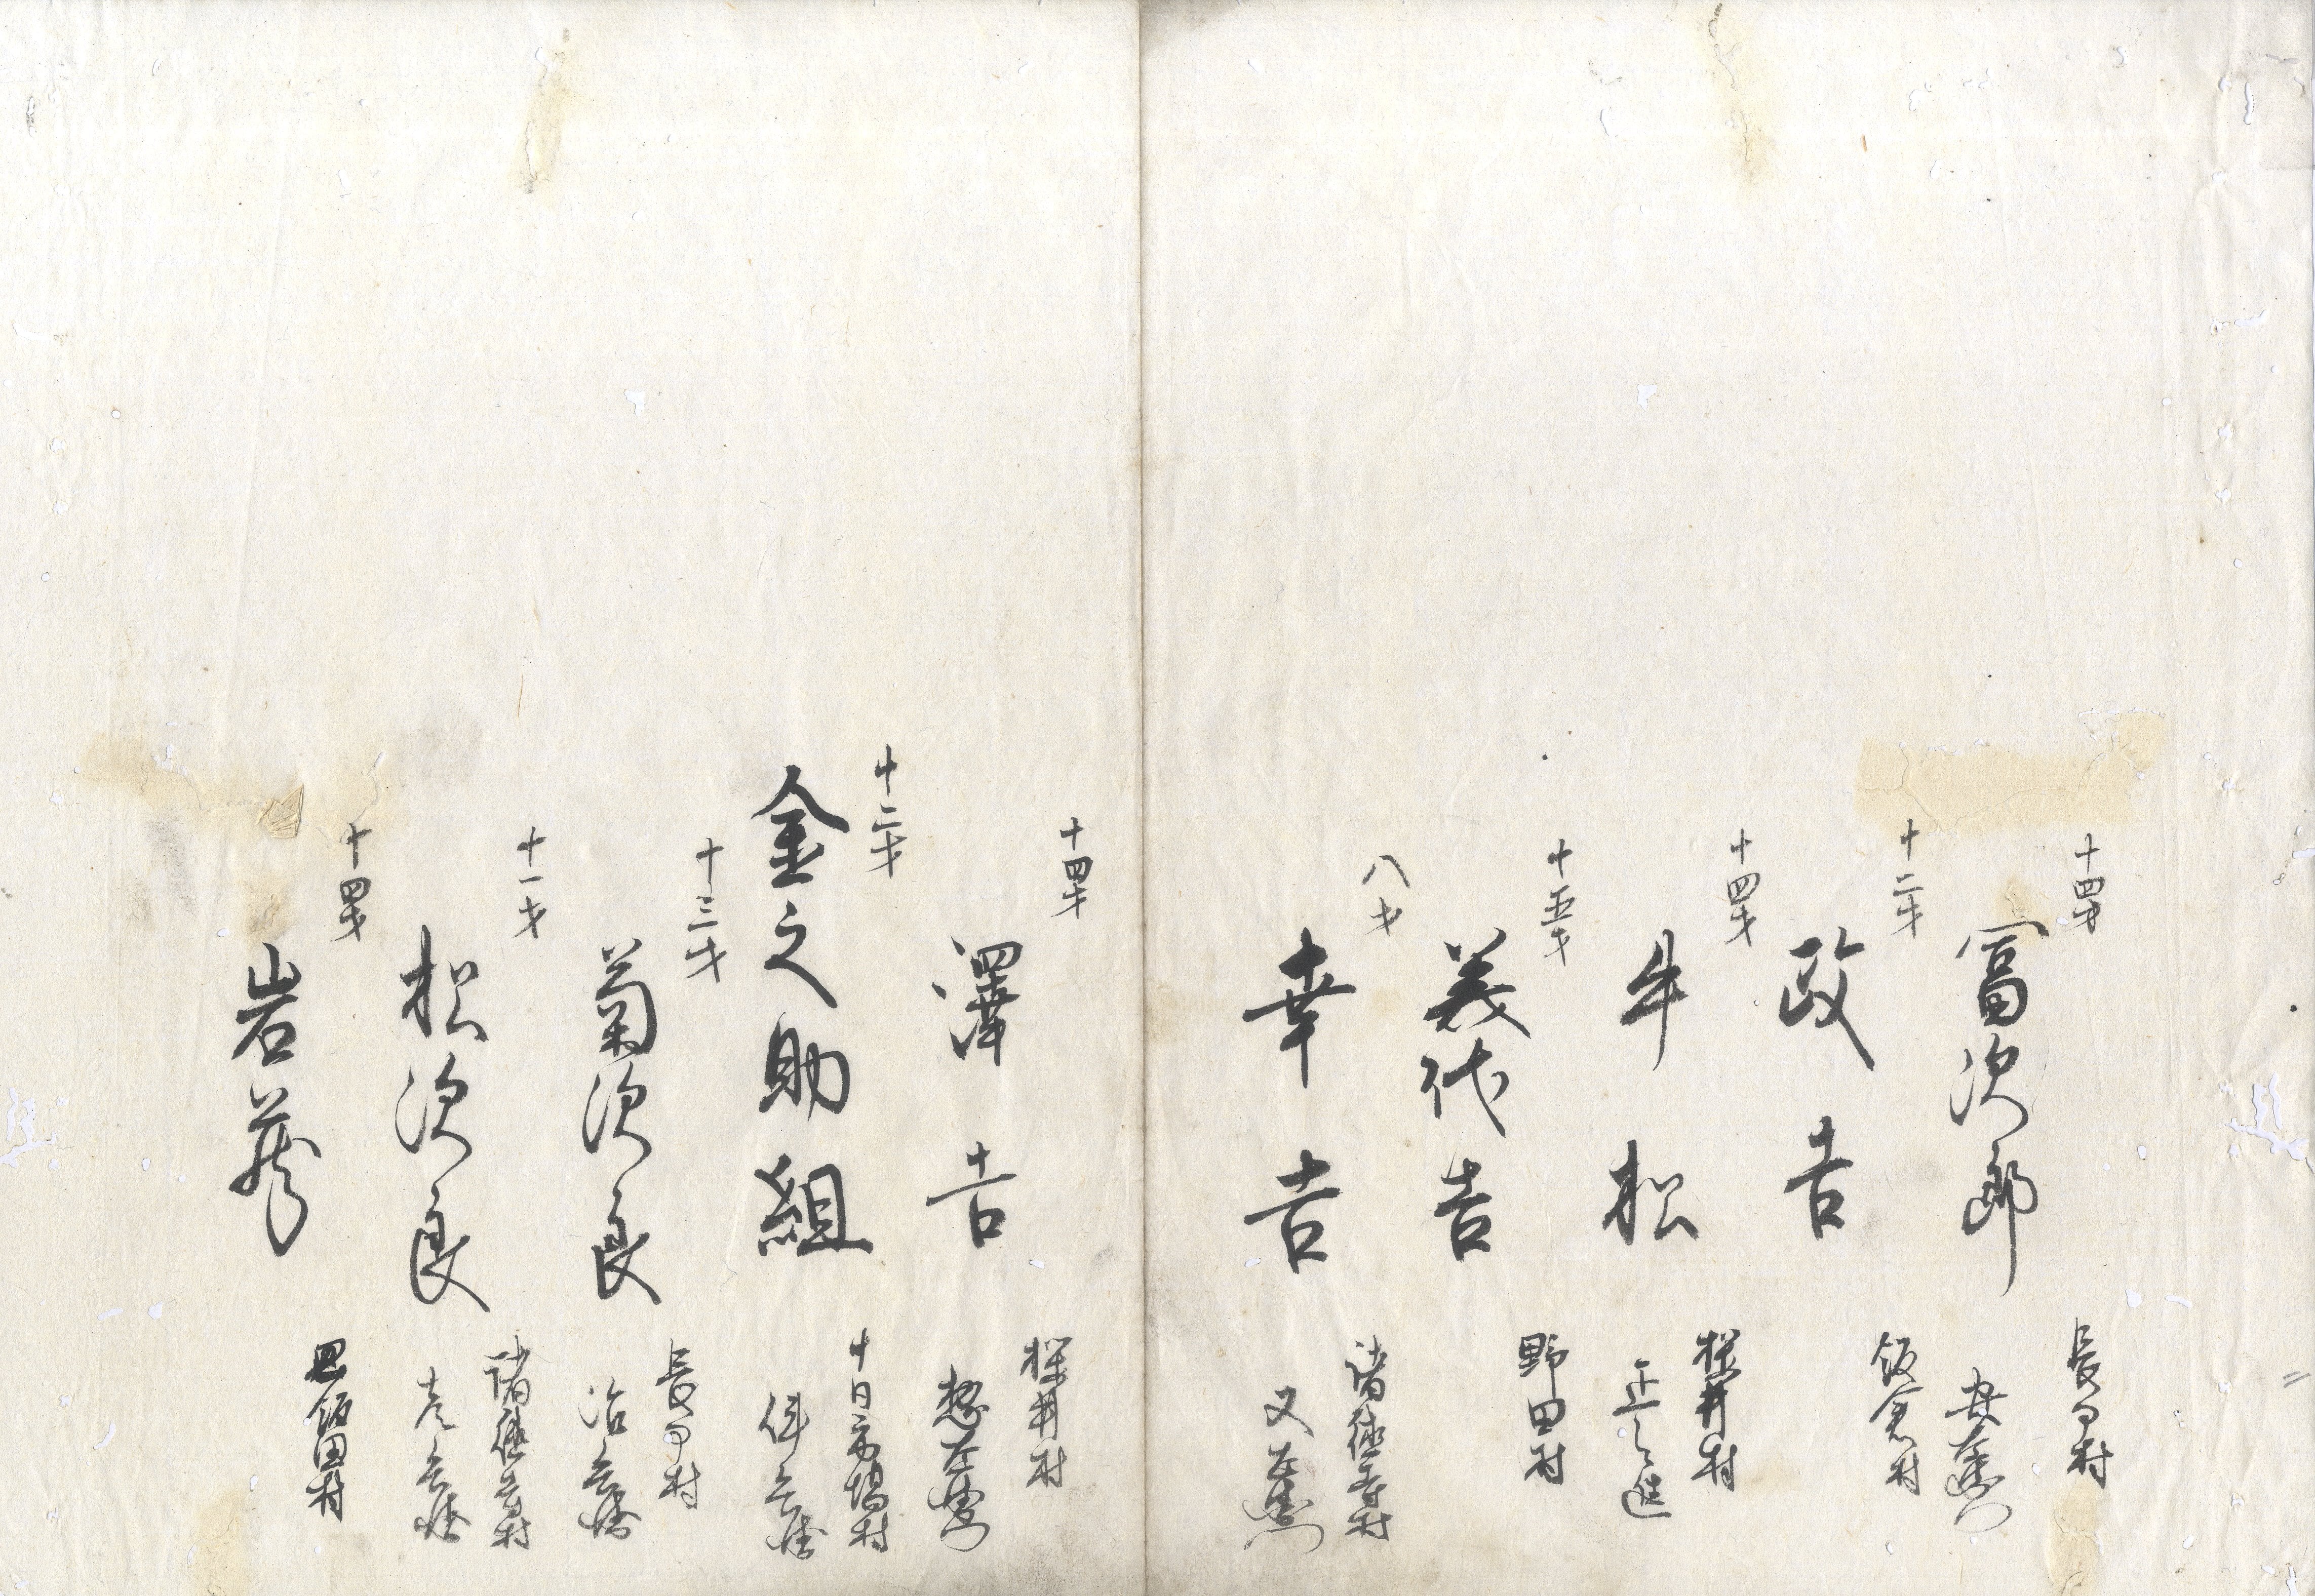 十四才
富次郎
長日村
安右衛門
十二才
政吉
飯倉村
十四才
牛松
桜井村
正之進
十五才
義代吉
野田村
八才
幸吉
諸徳寺村
又左衛門
十四才
澤吉
桜井村
惣左衛門
十二才
金之助組
十日市場村
伴兵衛
十三才
菊次良
長日村
治兵衛
十一才
松次良
諸徳寺村
彦兵衛
十四才
岩蔵
飯田村